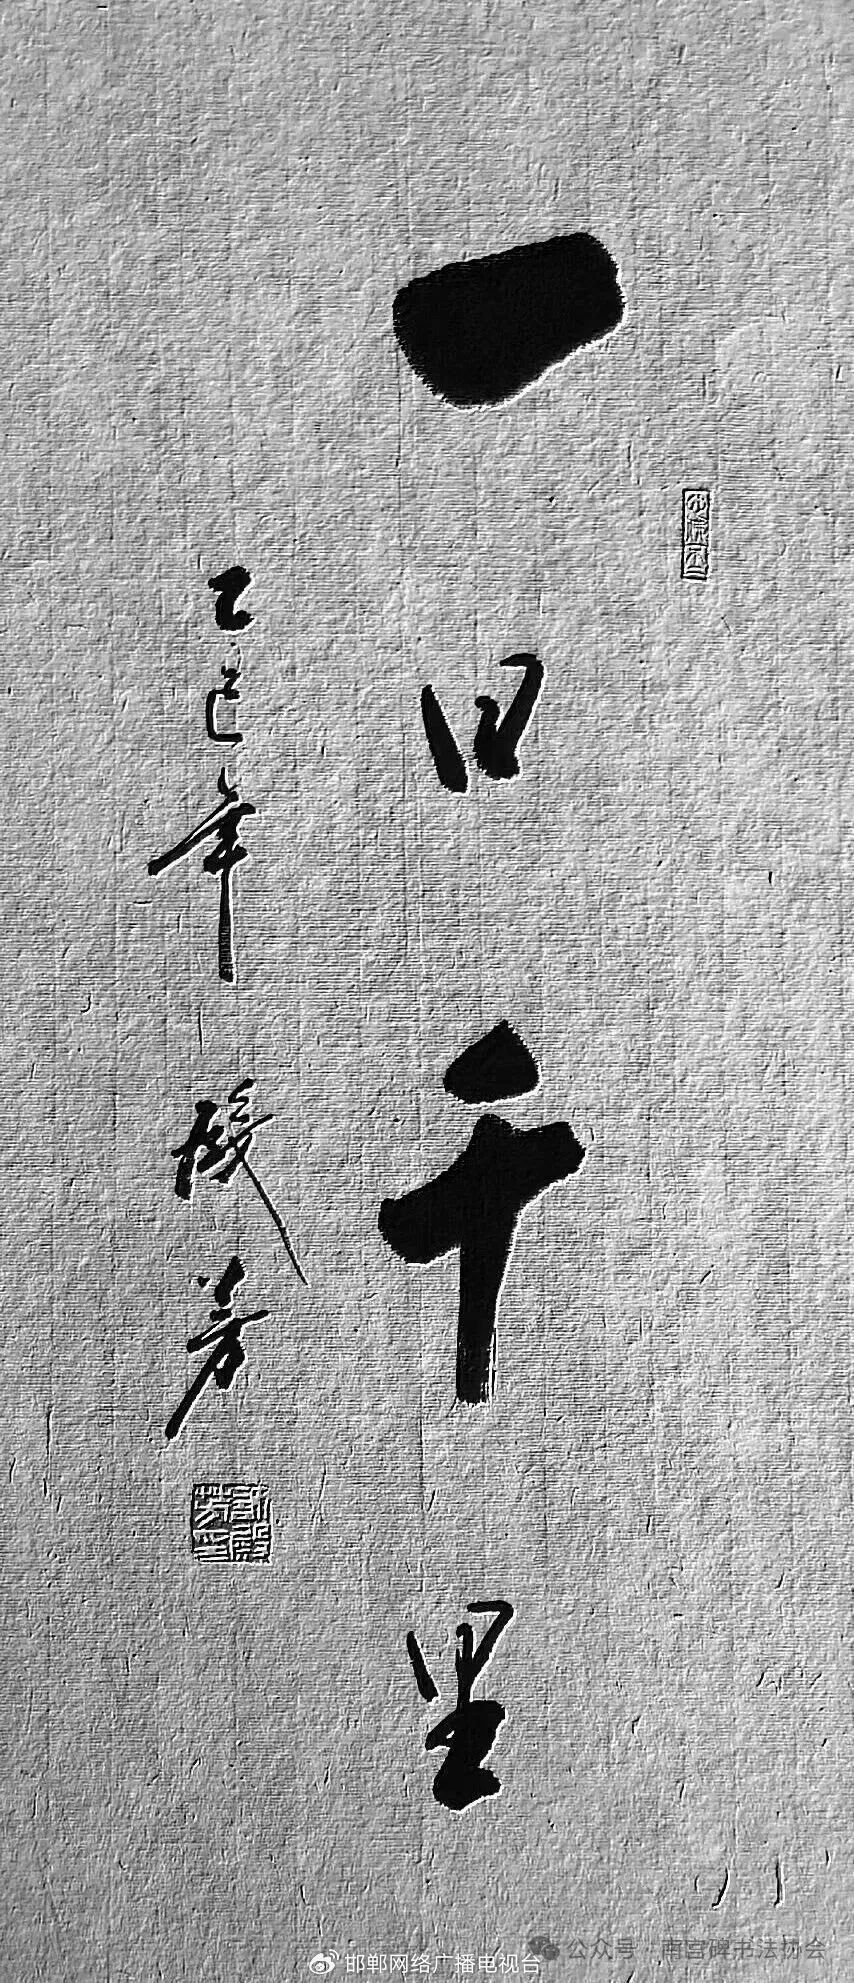 一日千里
乙巳年
芳
邯郸网络广播电视台
公众号·南宫碑书法协会